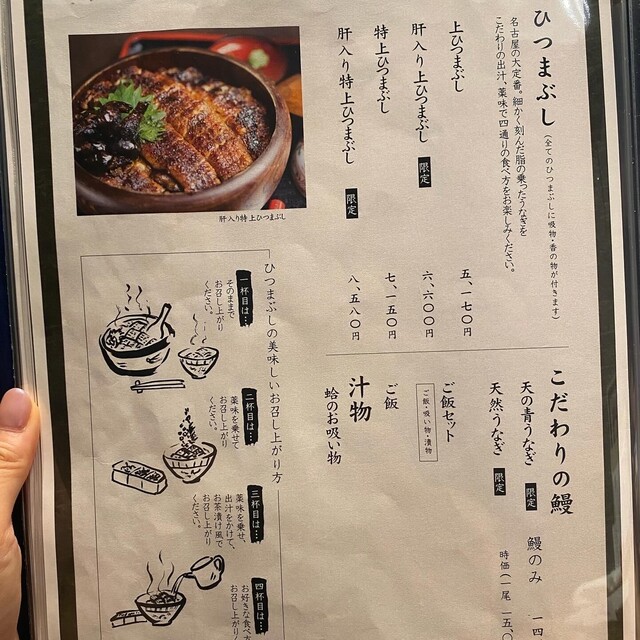 ひつまぶし（全てのひつまぶしに吸物・香の物が付きます）
名古屋の大定番。細かく刻んだ脂の乗ったうなぎを
こだわりの出汁、薬味で四通りの食べ方をお楽しみください。
上ひつまぶし 五、一七〇円
肝入り上ひつまぶし 限定 六、六〇〇円
特上ひつまぶし 七、一五〇円
肝入り特上ひつまぶし 限定 八、五八〇円
肝入り特上ひつまぶし
こだわりの鰻
鰻のみ 一四
天の青うなぎ 限定
時価（一尾 一五〇
天然うなぎ 限定
ご飯セット
ご飯・吸い物・漬物
ご飯
汁物
蛤のお吸い物
ひつまぶしの美味しいお召し上がり方
一杯目は…
そのままで
お召し上がり
ください。
二杯目は…
薬味を乗せて
お召し上がり
ください。
三杯目は…
薬味を乗せ、
出汁をかけて、
お茶漬け風で
お召し上がり
ください。
四杯目は…
お好きな食べ方で
お召し上がり